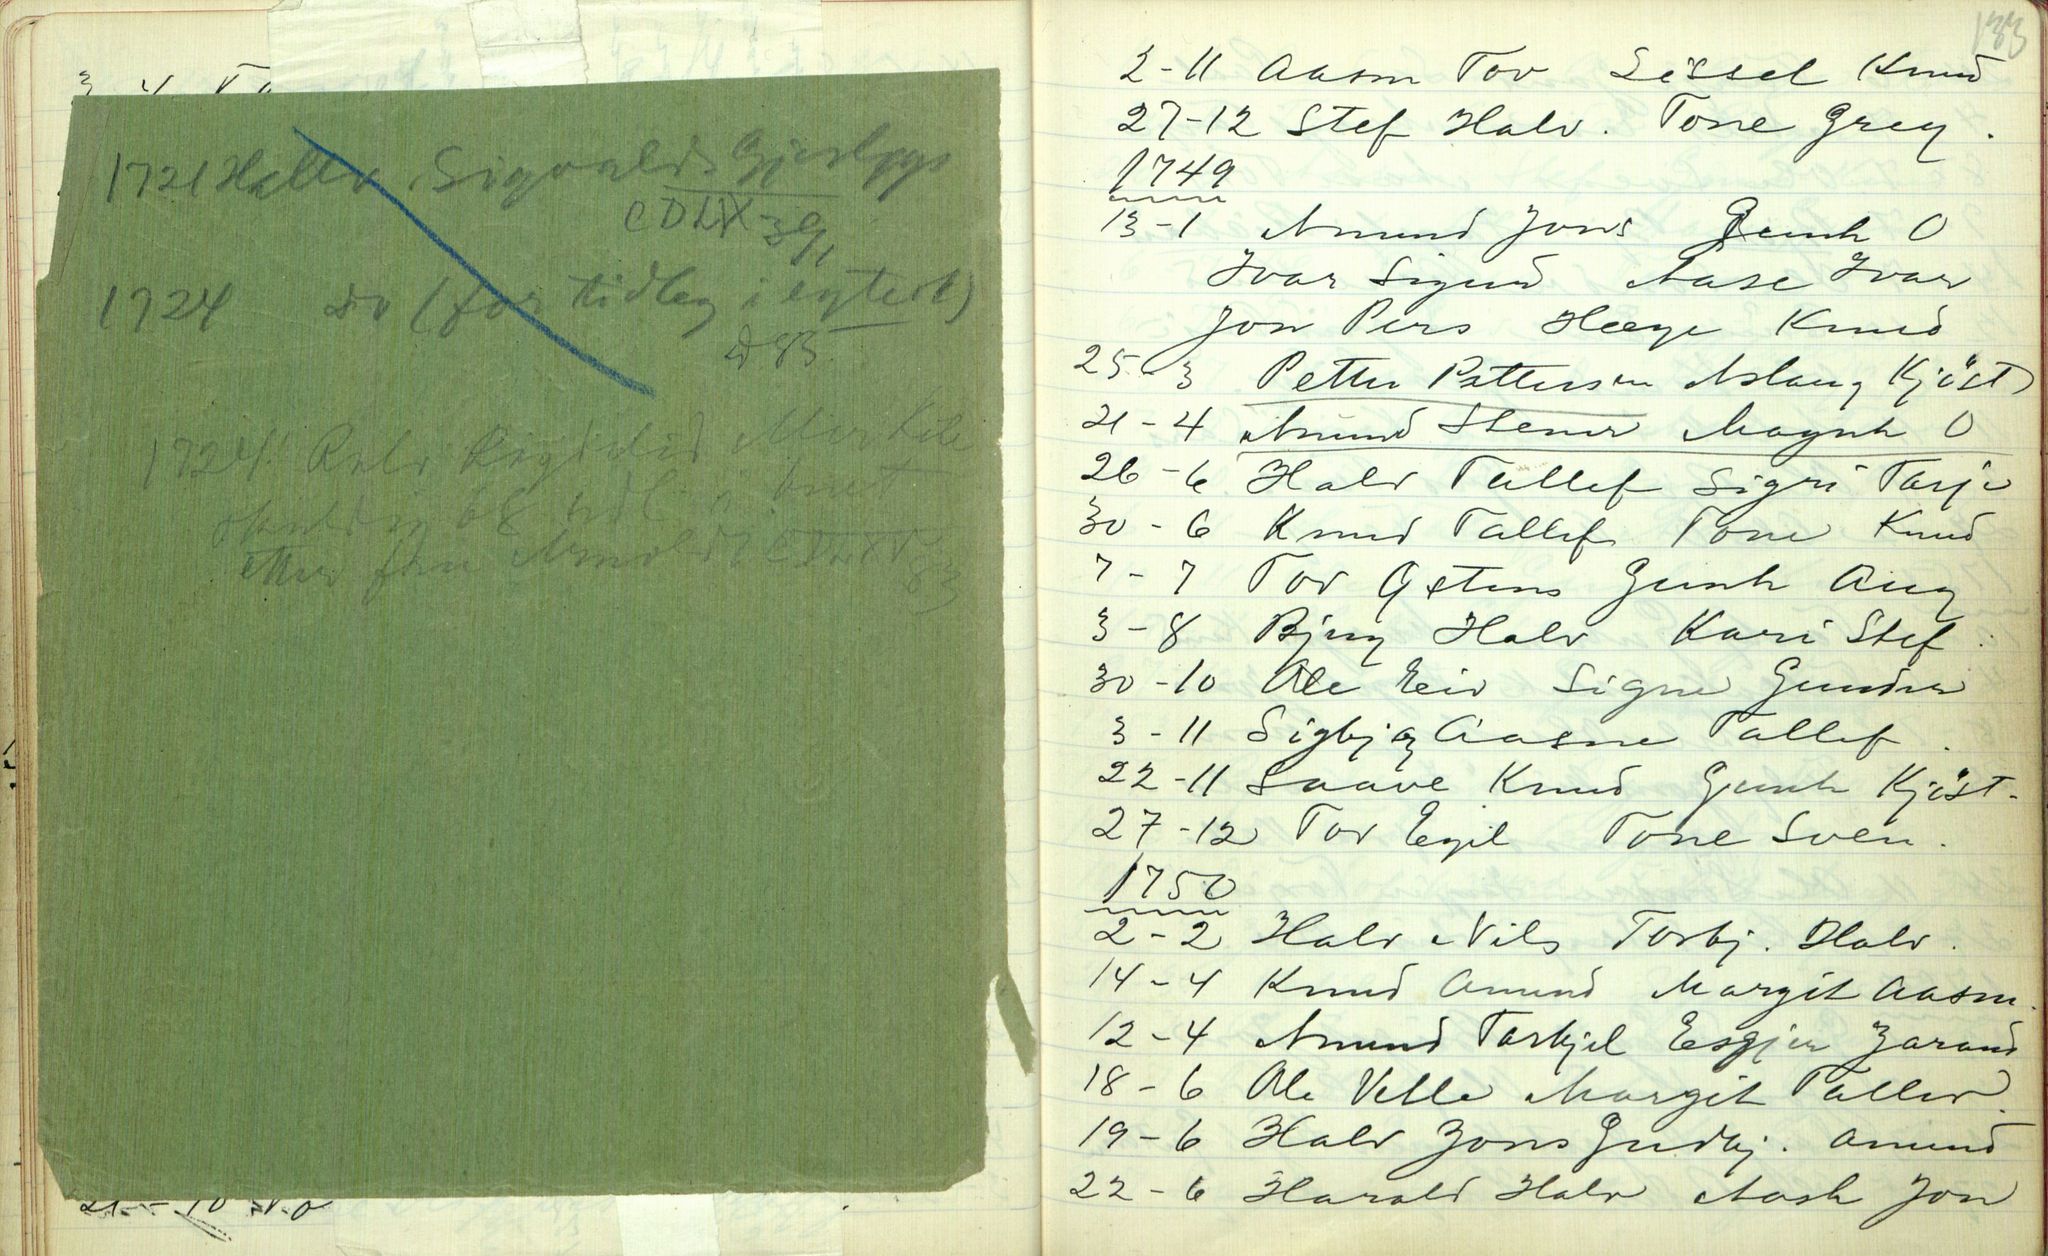 3 4 To
1721 Hallv Sigvalds Gjerløgs
CDLX 391
1724 do (for tidleg i
d 83
1724
83
21 - 10
133
2-11 Aasm Tov Sissel Knud
27-12 Stef Halv. Tone Greg.
1749
13-1 Amund Jons Gunh O
Ivar Sigurd Aase Ivar
Jon Pers Hæge Knud
25-3 Petter Pettersen Aslaug Kjöst
21-4 Amund Stener Magnh O
26-6 Halv Tallef Sigri Tarje
30-6 Knud Tallef Tone Knud
7-7 Tov Østens Gunh Aug
3-8 Bjug Halv Kari Stef.
30-10 Ole Eiv Signe Gundm
3-11 Sigbj og Aasne Tallef.
22-11 Saave Knud Gunh Kjöst.
27-12 Tov Egil Tone Sven.
1750
2-2 Halv Nils Torbj. Halv.
14-4 Knud Amund Margit Aasm.
12-4 Amund Tarkjel Esgjer Jarand
18-6 Ole Vetle Margit Tallev.
19-6 Halv Jons Gudbj. Amund
22-6 Harald Halv Aash Jon